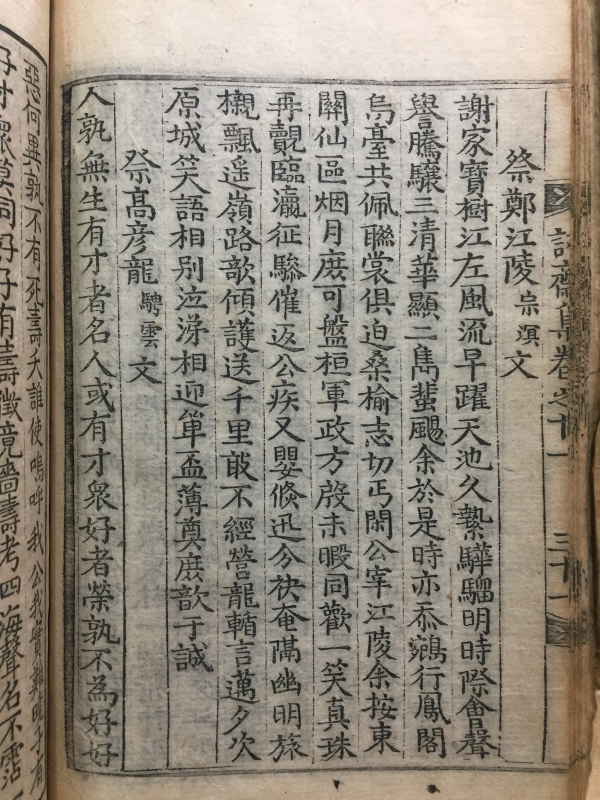 齋集卷之十一 三十一
祭鄭江陵宗溟文
謝家寶樹江左風流早躍天池久縶驊騮明時際會聲
譽騰驤三清華顯二雋蜚颺余於是時亦忝鵷行鳳閣
烏臺共佩聯裳俱迫桑榆志切丐閑公宰江陵余按東
關仙區烟月庶可盤桓軍政方殷未暇同歡一笑真珠
再覿臨瀛征驂催返公疾又嬰倐迅分袂奄隔幽明旅
櫬飄遥嶺路歌傾護送千里敢不經營龍輴言邁夕次
原城笑語相別泣涕相迎簞盃薄奠庶歆于誠
祭高彦龍騁雲文
人孰無生有才者名人或有才衆好者榮孰不為好好
惡何異孰不有死壽夭誰使嗚呼我公我實難晚子有
子才衆莫同好子有壽徵竟嗇壽考四海聲名不霑一